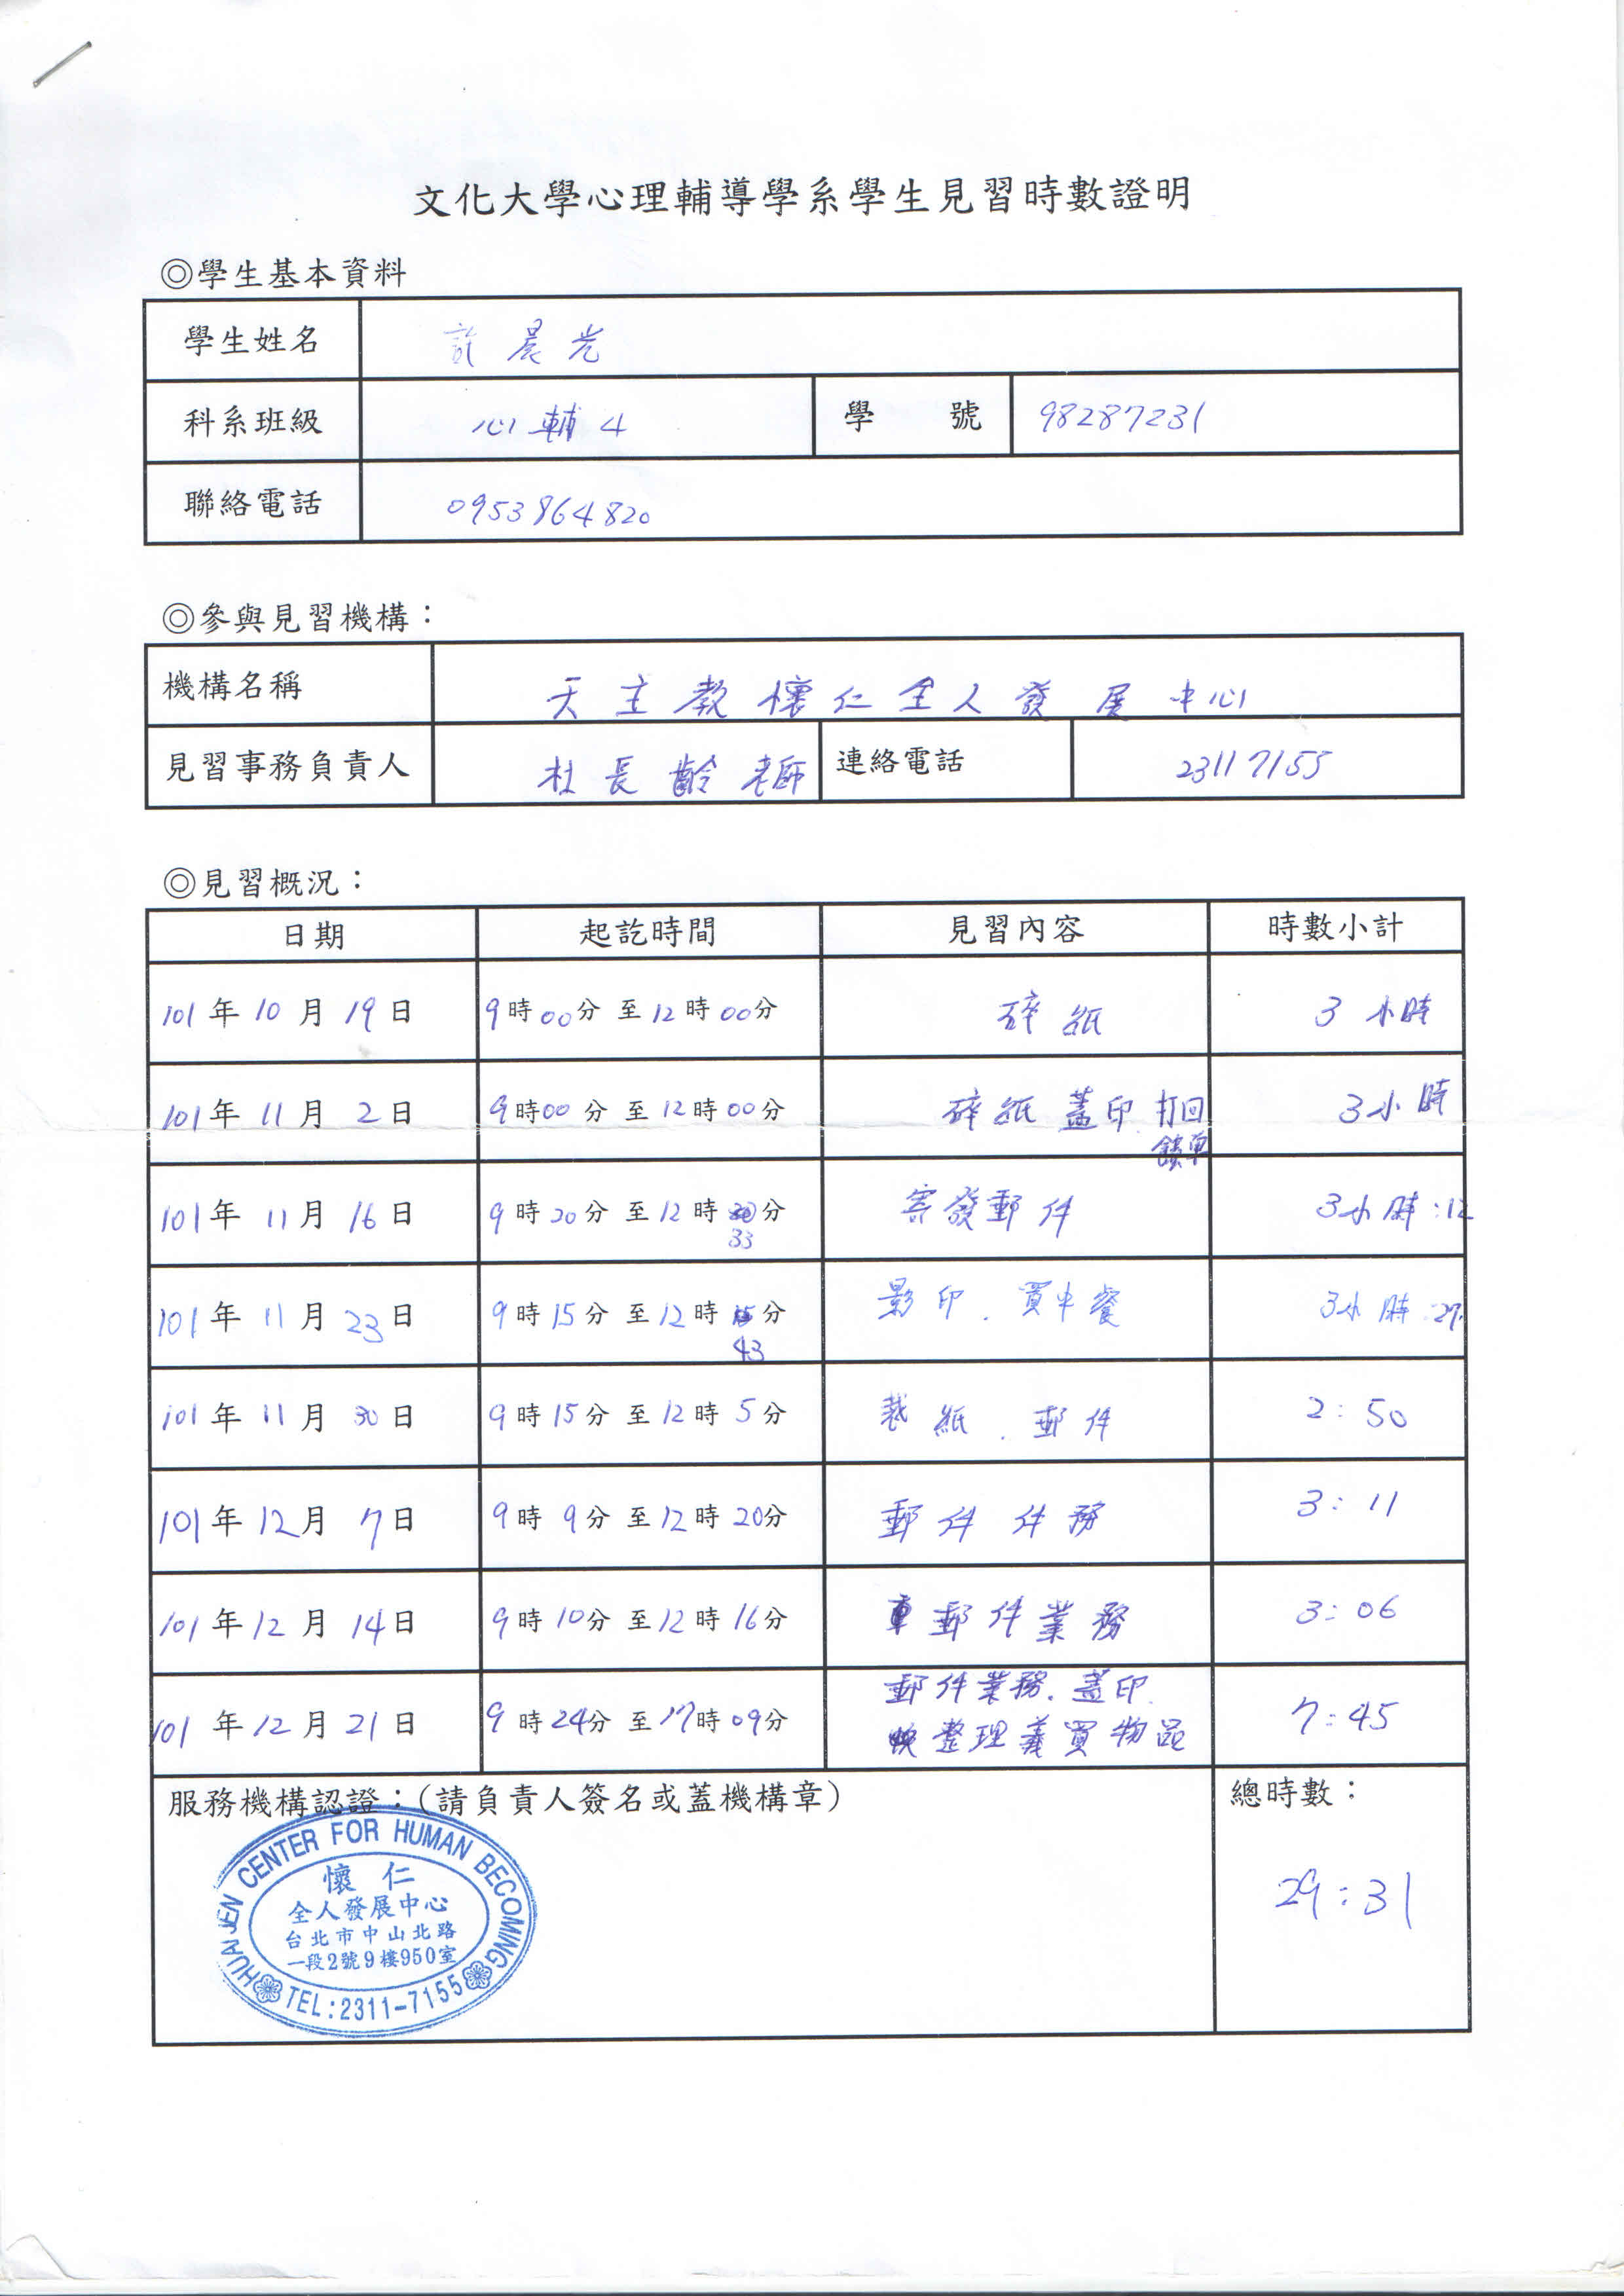 文化大學心理輔導學系學生見習時數證明
◎學生基本資料
學生姓名 許晨光
科系班級 心輔4 學號 98287231
聯絡電話 0953864820
◎參與見習機構：
機構名稱 天主教懷仁全人發展中心
見習事務負責人 杜長齡老師 連絡電話 23117155
◎見習概況：
日期 起訖時間 見習內容 時數小計
101年10月19日 9時00分至12時00分 碎紙 3小時
101年11月2日 9時00分至12時00分 碎紙 蓋印 打回饋單 3小時
101年11月16日 9時20分至12時33分 寄發郵件 3小時:12
101年11月23日 9時15分至12時43分 影印．買中餐 3小時:29
101年11月30日 9時15分至12時5分 裁紙．郵件 2:50
101年12月7日 9時9分至12時20分 郵件件務 3:11
101年12月14日 9時10分至12時16分 郵件業務 3:06
101年12月21日 9時24分至17時09分 郵件業務．蓋印
整理義買物品 7:45
服務機構認證：（請負責人簽名或蓋機構章） 總時數：
29:31
HUAI JEN CENTER FOR HUMAN BECOMING
懷仁
全人發展中心
台北市中山北路
一段2號9樓950室
TEL:2311-7155